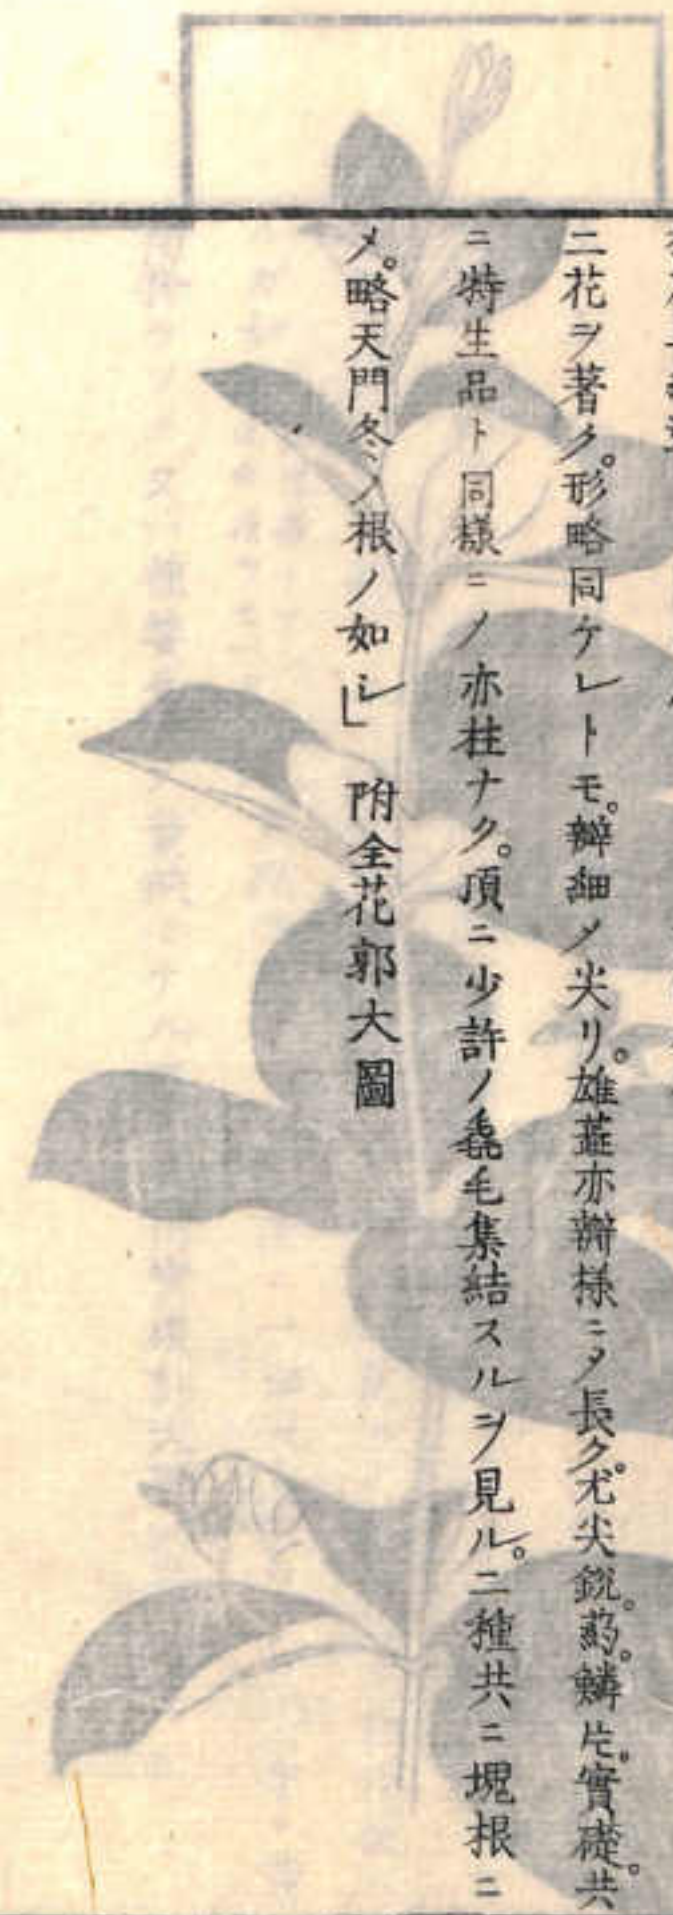 二花ヲ著ク。形略同ケレトモ。瓣細メ尖リ。雄蕋亦瓣様ニメ長ク。尤尖鋭。葯。鱗片。實礎。共
ニ特生品ト同様ニノ亦柱ナク。頂ニ少許ノ毳毛集結スルヲ見ル。二種共ニ塊根ニ
メ。略天門冬ノ根ノ如シ」 附全花郭大圖